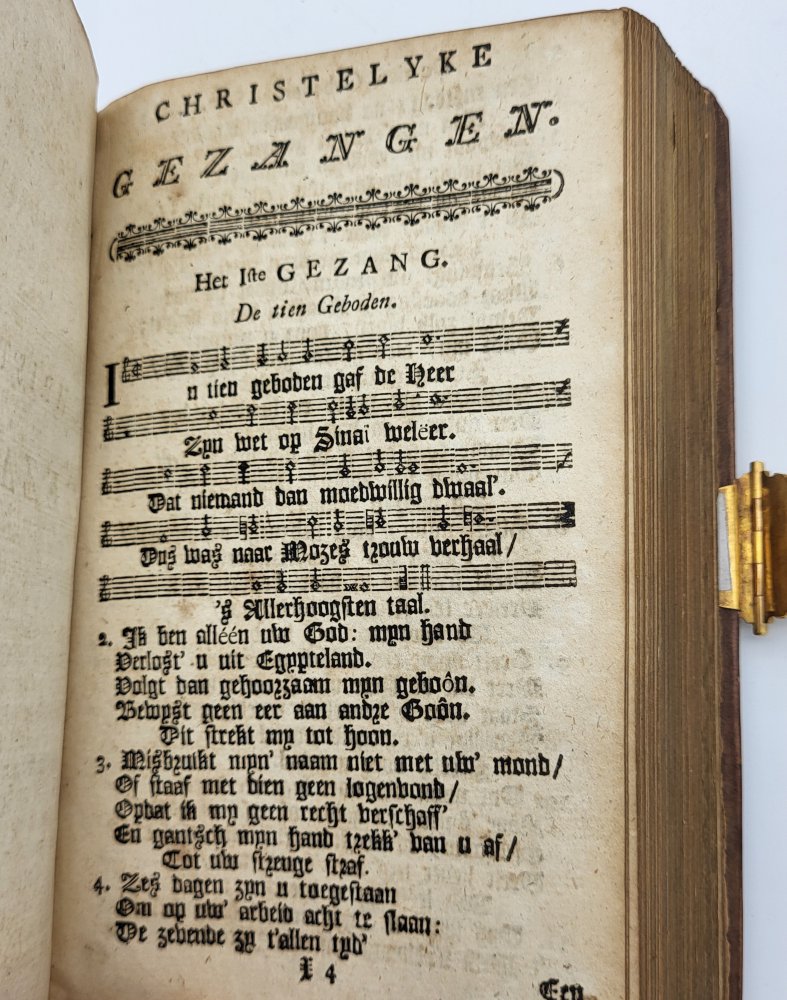 CHRISTELYKE
GEZANGEN.
Het Iste GEZANG.
De tien Geboden.
In tien geboden gaf de Heer
Zyn wet op Sinaï welëer.
Dat niemand dan moedwillig dwaal'.
Ons was naar Mozes trouw verhaal/
's Allerhoogsten taal.
2. Ik ben alléén uw God: myn hand
Verlost' u uit Egypteland.
Volgt dan gehoorzaam myn geboôn.
Bewyst geen eer aan andre Goôn.
Dit strekt my tot hoon.
3. Misbruikt myn' naam niet met uw' mond/
Of staaf met dien geen logenvond/
Opdat ik my geen recht verschaff'
En gantsch myn hand trekk' van u af/
Tot uw strenge straf.
4. Zes dagen zyn u toegestaan
Om op uw' arbeid acht te slaan:
De zevende zy t'allen tyd'
I 4
Een